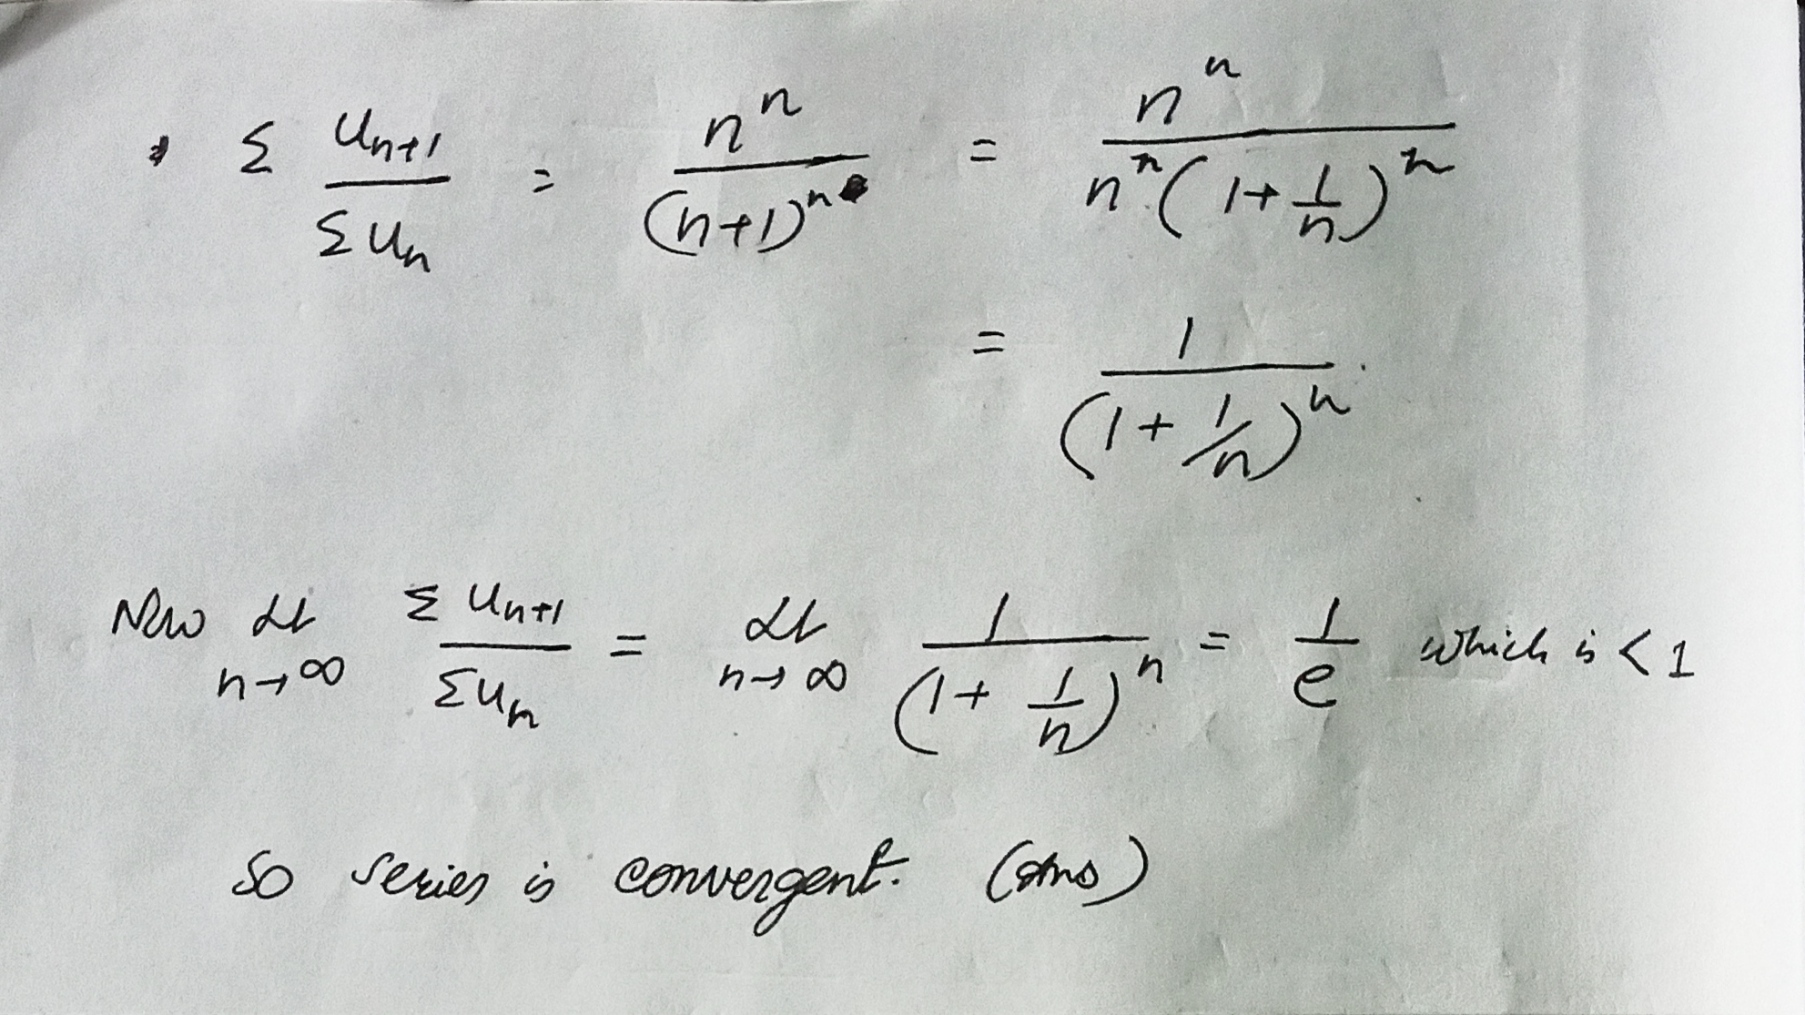 Σ u_{n+1} / Σ u_n = n^n / (n+1)^n = n^n / n^n (1 + 1/n)^n
= 1 / (1 + 1/n)^n
Now Lt n→∞ Σ u_{n+1} / Σ u_n = Lt n→∞ 1 / (1 + 1/n)^n = 1/e which is < 1
So series is convergent. (Ans)